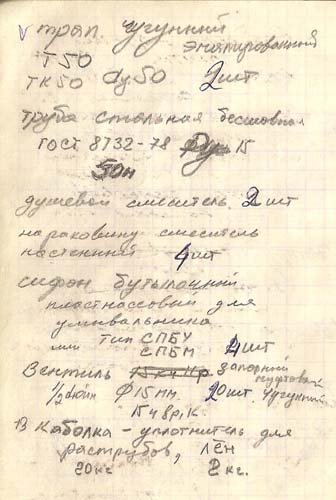 √ трап. чугунный
эмалированный
Т50
ТК50 dy50 2шт
труба стальная бесшовная
ГОСТ 8732-78 Ду 15
50м
душевой смеситель 2шт
на раковину смеситель
настенный 4шт
сифон бутылочный
пластмассовый для
умывальника
или тип СПБУ
СПБМ 4шт
Вентиль 15кч11р запорный
муфтовый
1/2 дюйм Ф15мм. 20шт. чугунный
15ч8р1к
Каболка - уплотнитель для
раструбов, лён
20кг 2кг.